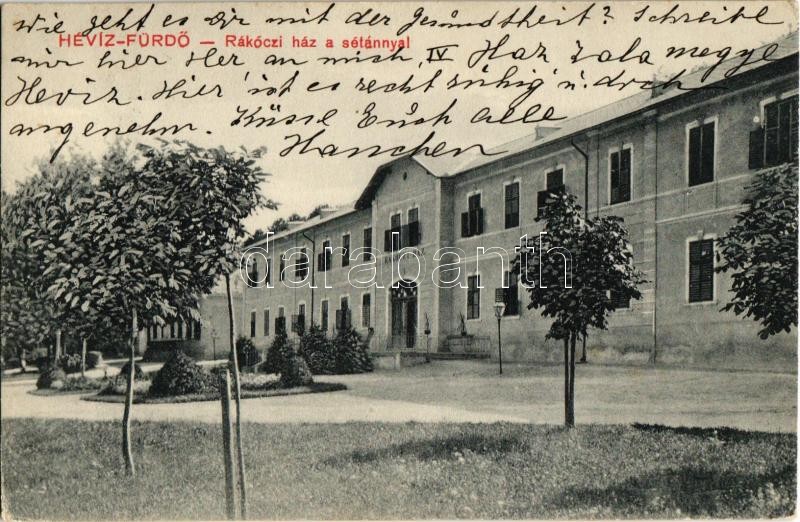 Wie geht es Dir mit der Gesundtheit? Schreibe
HÉVÍZ-FÜRDŐ — Rákóczi ház a sétánnyal
mir hier Her an mich, IV Haz Zala megye
Heviz. Hier ist es recht ruhig u. doch
angenehm. Küsse Euch alle
Hanchen
darabanth